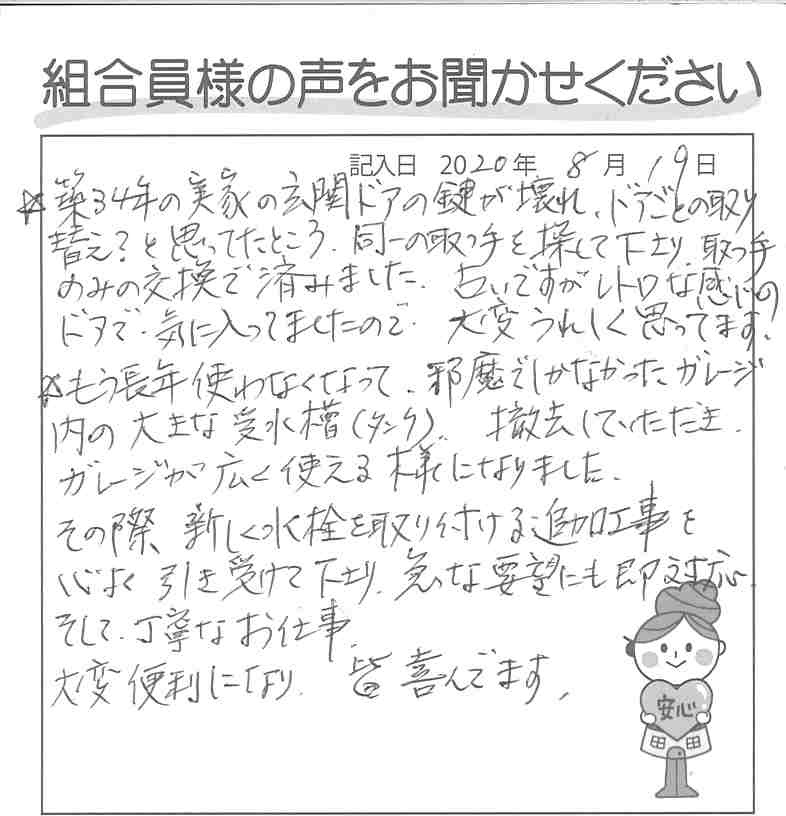 組合員様の声をお聞かせください
記入日 2020年 8月 19日
☆築34年の実家の玄関ドアの鍵が壊れ、ドアごとの取り
替え?と思ってたところ、同一の取っ手を探して下さり、取っ手
のみの交換で済みました。古いですがレトロな感じの
ドアで、気に入ってましたので、大変うれしく思ってます。
☆もう長年使わなくなって、邪魔でしかなかったガレージ
内の大きな受水槽(タンク)、撤去していただき、
ガレージが広く使える様になりました。
その際、新しく水栓を取り付ける追加工事を
心よく引き受けて下さり、急な要望にも即対応、
そして、丁寧なお仕事、
大変便利になり、皆喜んでます。
安心